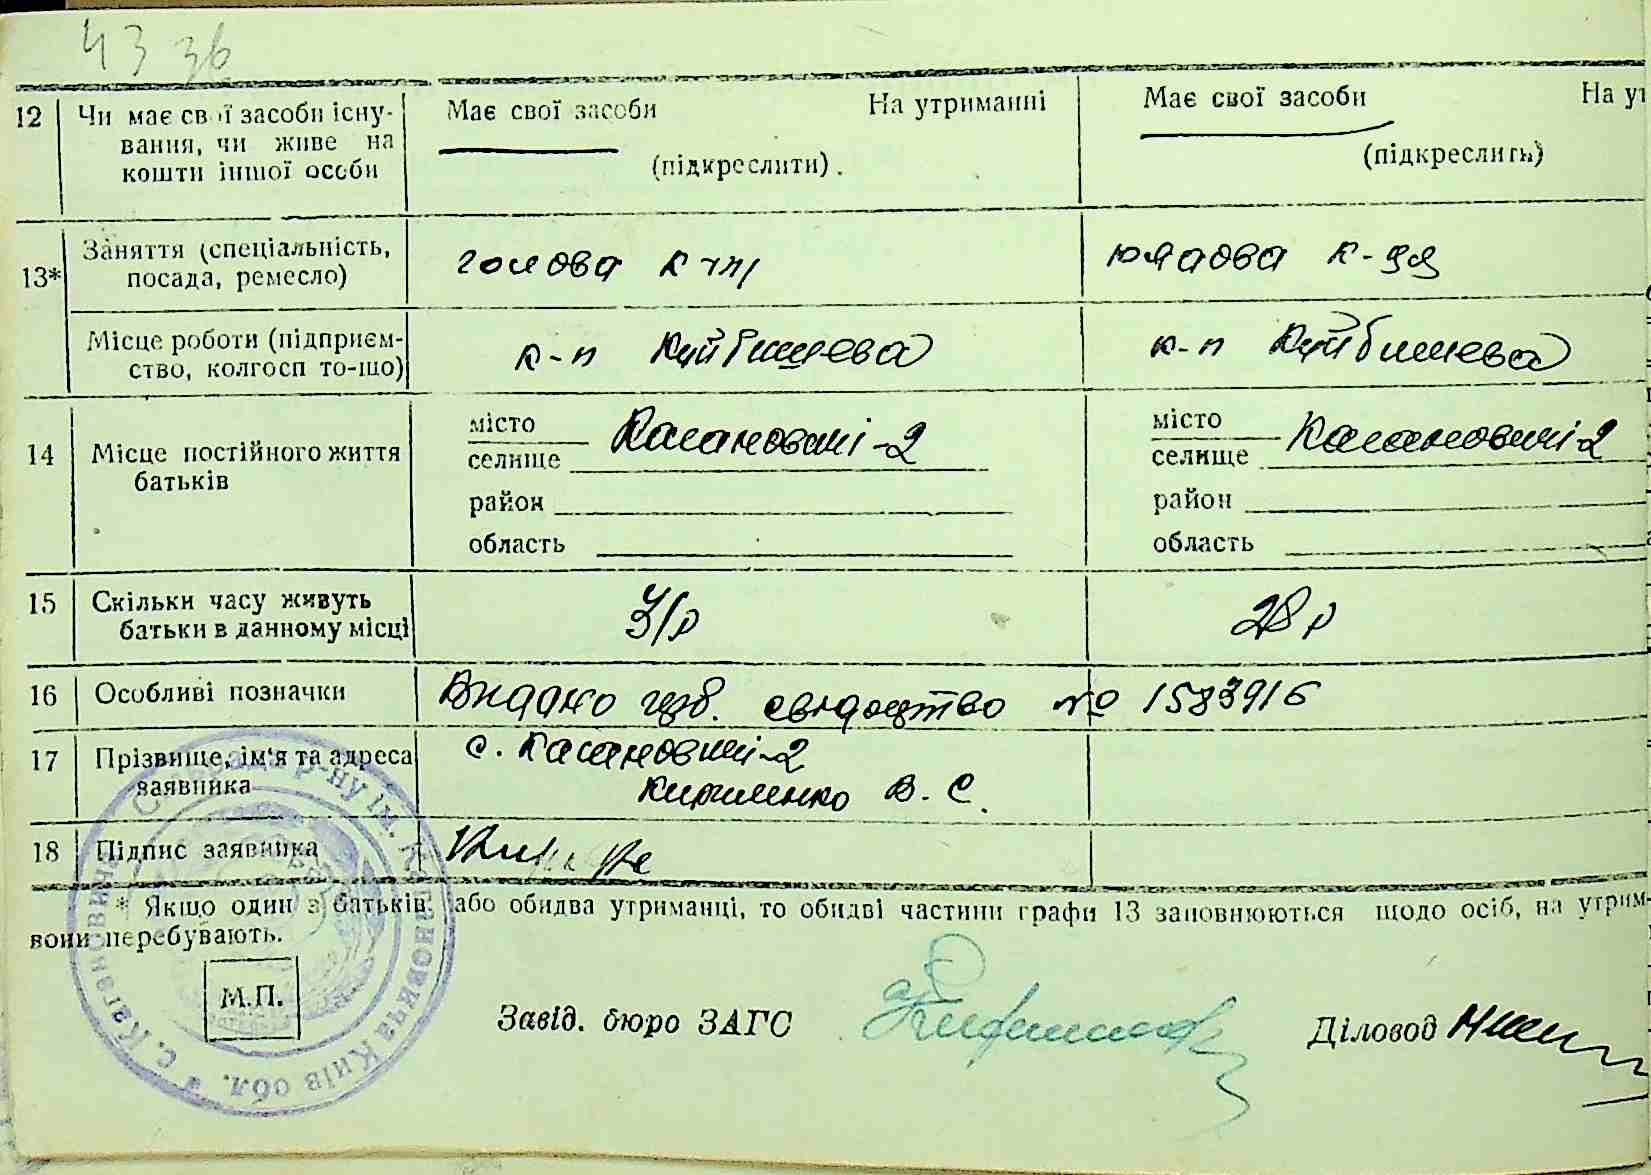 43 зв
12 Чи має свої засоби існу- Має свої засоби На утриманні Має свої засоби На ут
вання, чи живе на
кошти іншої особи (підкреслити). (підкреслить)
13* Заняття (спеціальність,
посада, ремесло) голова к
Місце роботи (підприєм-
ство, колгосп то-що) к-п Куйбишева к-п Куйбишева
14 Місце постійного життя
батьків
місто Кагановичі-2 місто Кагановичі-2
селище селище
район район
область область
15 Скільки часу живуть
батьки в данному місці 28 р
16 Особливі позначки Видано свідоцтво № 1583916
17 Прізвище, ім'я та адреса
заявника с. Кагановичі-2
Кириленко В. С.
18 Підпис заявника
* Якщо один з батьків, або обидва утриманці, то обидві частини графи 13 заповнюються щодо осіб, на утрим-
вони перебувають.
М.П.
Завід. бюро ЗАГС Діловод
р-ну ім. Кагановича Київ обл. * с. Кагановичі